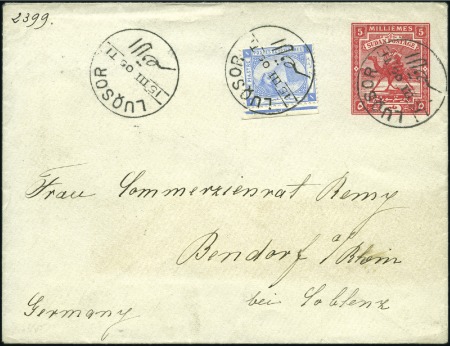 2399.
LUQSOR
15 III 06 T1
LUQSOR
5 MILLIEMES 5
SUDAN POSTAGE
LUQSOR
Frau Commerzienrat Remy
Bendorf a/Rhein
bei Coblenz
Germany